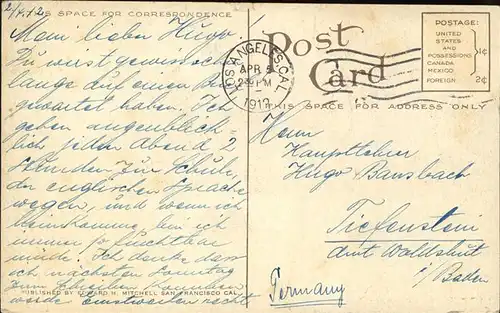 2/IV.12
THIS SPACE FOR CORRESPONDENCE
Mein lieber Hugo
Du wirst gewiss schon
lange auf einen
gewartet haben. Ich
gehen augenblick-
lich jeden Abend 2
Stunden zur Schule,
der englischen Sprache
wegen, und wenn ich
heimkomme, bin ich
immer so furchtbar
müde. Ich denke dass
ich nächsten Sonntag
zum Schreiben kommen
werde Einstweilen recht
PUBLISHED BY EDWARD H. MITCHELL SAN FRANCISCO CAL.
Post
Card
THIS SPACE FOR ADDRESS ONLY
LOS ANGELES, CAL.
APR 5
PM
1912
POSTAGE:
UNITED
STATES
AND
POSSESSIONS
CANADA
MEXICO
1¢
FOREIGN 2¢
Herrn
Hauptlehrer
Hugo Bansbach
Tiefenstein
Amt Waldshut
i/Baden
Germany